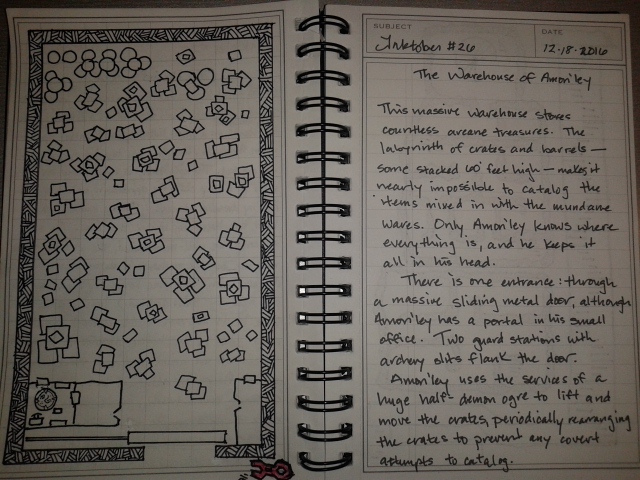 SUBJECT
Inktober #26
DATE
12-18-2016
The Warehouse of Amon'ley
This massive warehouse stores
countless arcane treasures. The
labyrinth of crates and barrels —
some stacked 60 feet high — makes it
nearly impossible to catalog the
items mixed in with the mundane
waves. Only Amon'ley knows where
everything is, and he keeps it
all in his head.
There is one entrance: through
a massive sliding metal door, although
Amon'ley has a portal in his small
office. Two guard stations with
archery slits flank the door.
Amon'ley uses the services of a
huge half-demon ogre to lift and
move the crates, periodically rearranging
the crates to prevent any covert
attempts to catalog.